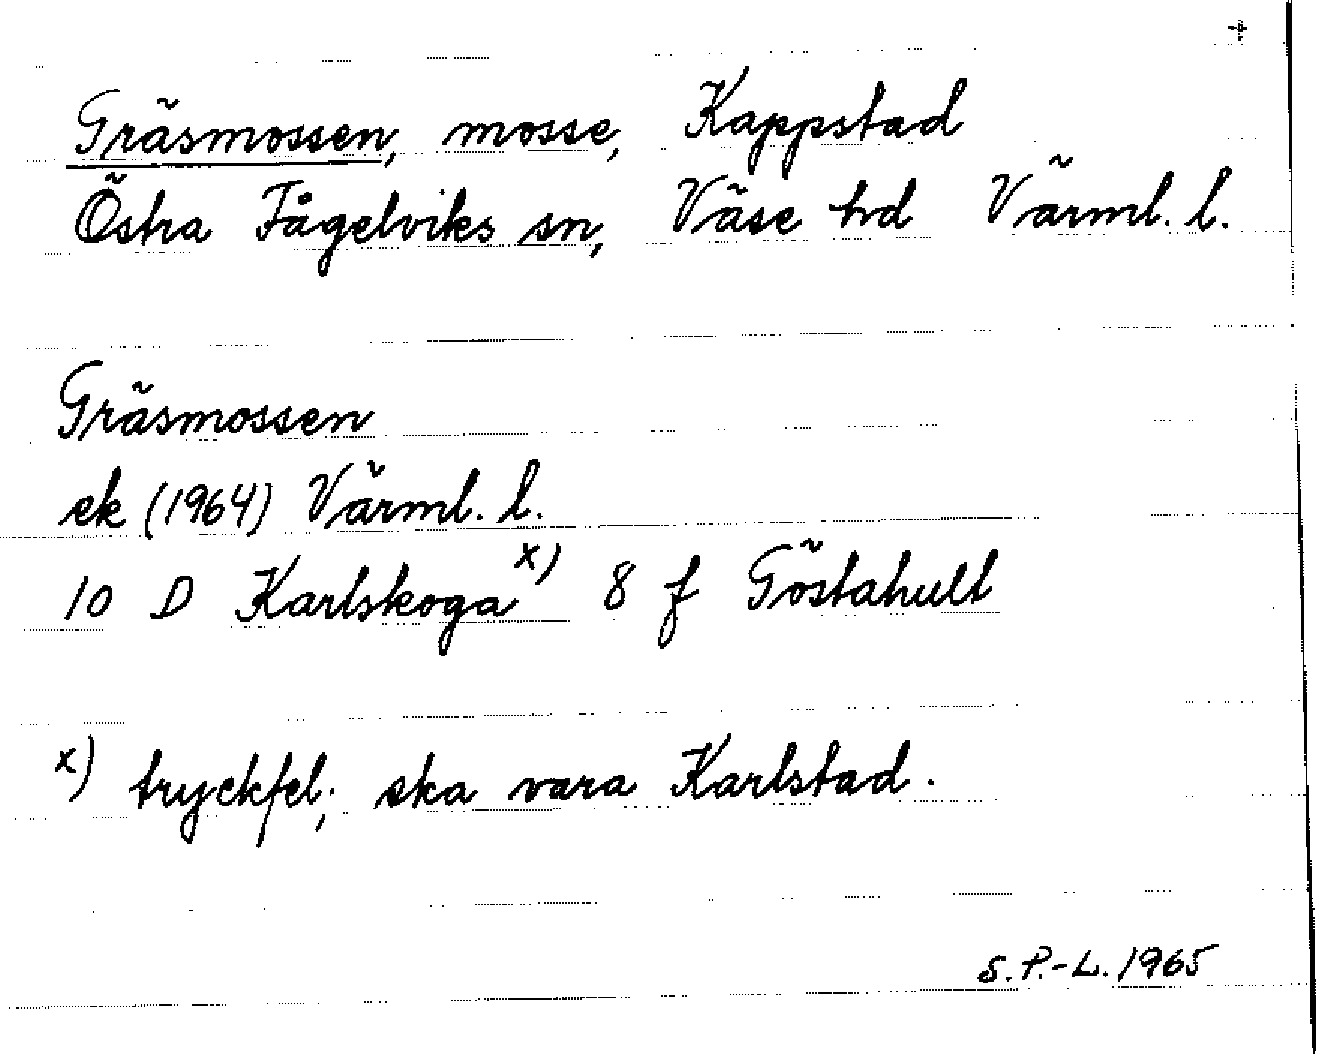 +
Gräsmossen, mosse, Kappstad
Östra Fågelviks sn, Väse hd Värml. l.
Gräsmossen
ek (1964) Värml. l.
10 D Karlskoga x) 8 f Göstahult
x) tryckfel; ska vara Karlstad.
S.P.-L. 1965